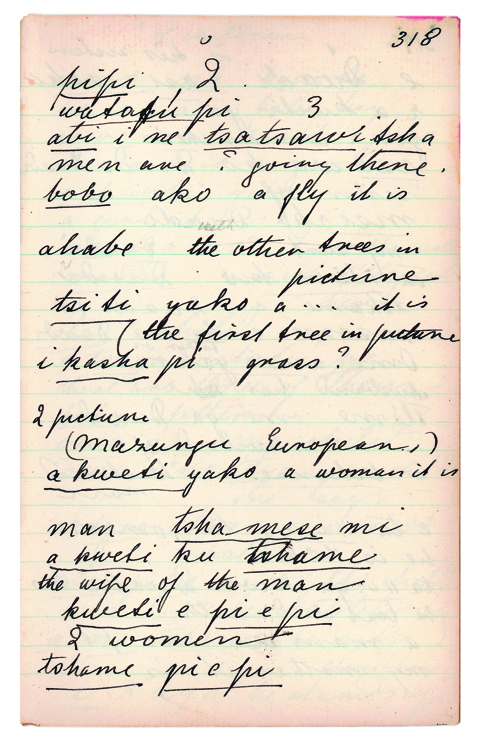 318
pipi , 2 .
watatu pi 3
abi i ne tsatsawi tsha
men are ? going there .
bobo ako a fly it is
ahabe the other trees in
picture
tsiti yako a ... it is
( the first tree in picture
i kasha pi grass ?
2 picture
(Mazungu European,)
a kweti yako a woman it is
man tsha mese mi
a kweti ku tshame
the wife of the man
kweti e pi e pi
2 women
tshame pi e pi